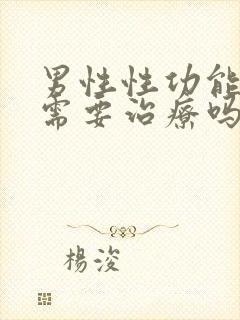 男性性功能
需要治療吗
楊浚